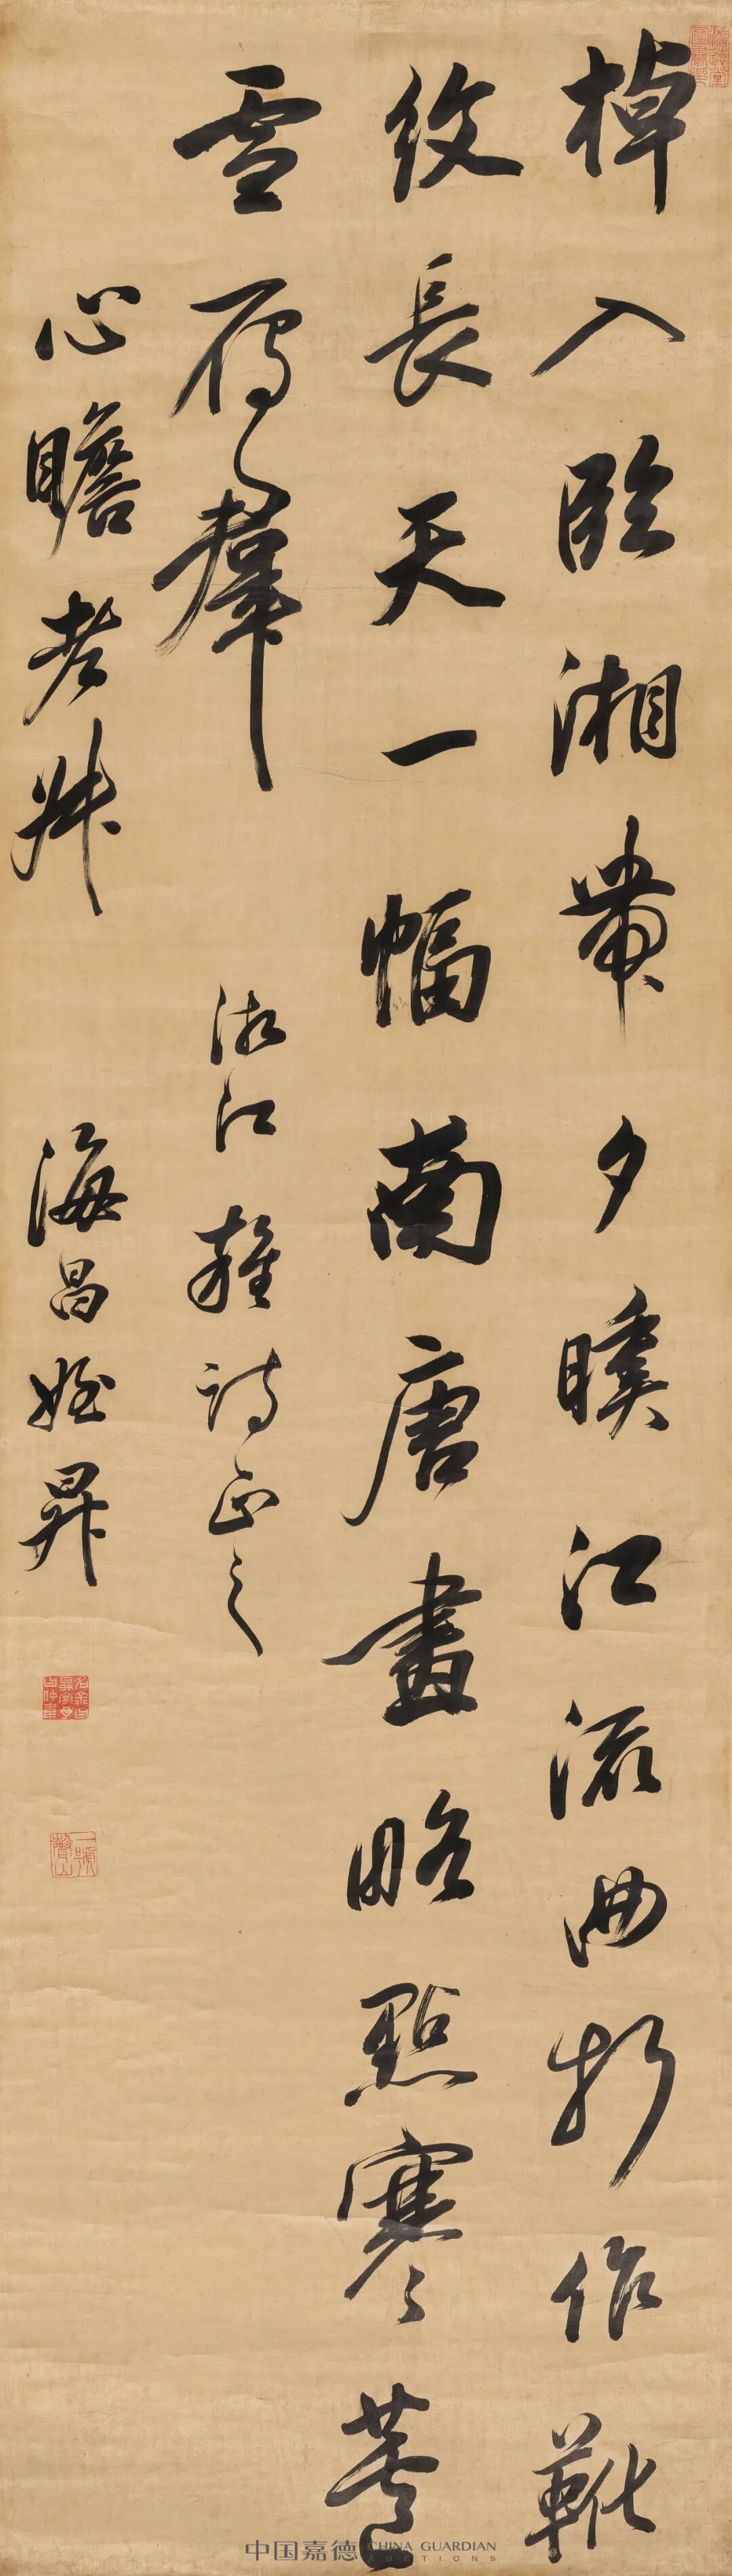 棹入臨湘帶夕曛江流曲折作靴
紋長天一幅南唐畫略點寒蘆
雪雁羣 湘江雜詩正之
心瞻老叔 海昌姪昇
中国嘉德 CHINA GUARDIAN
AUCTIONS